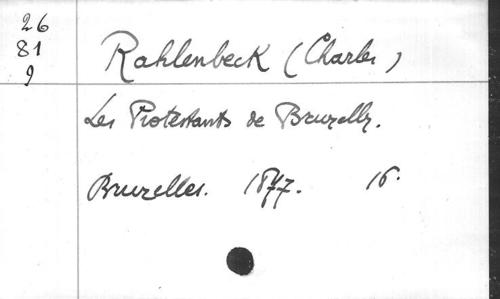 26
81
9
Rahlenbeck (Charles)
Les Protestants de Bruxelles.
Bruxelles. 1877. 16.